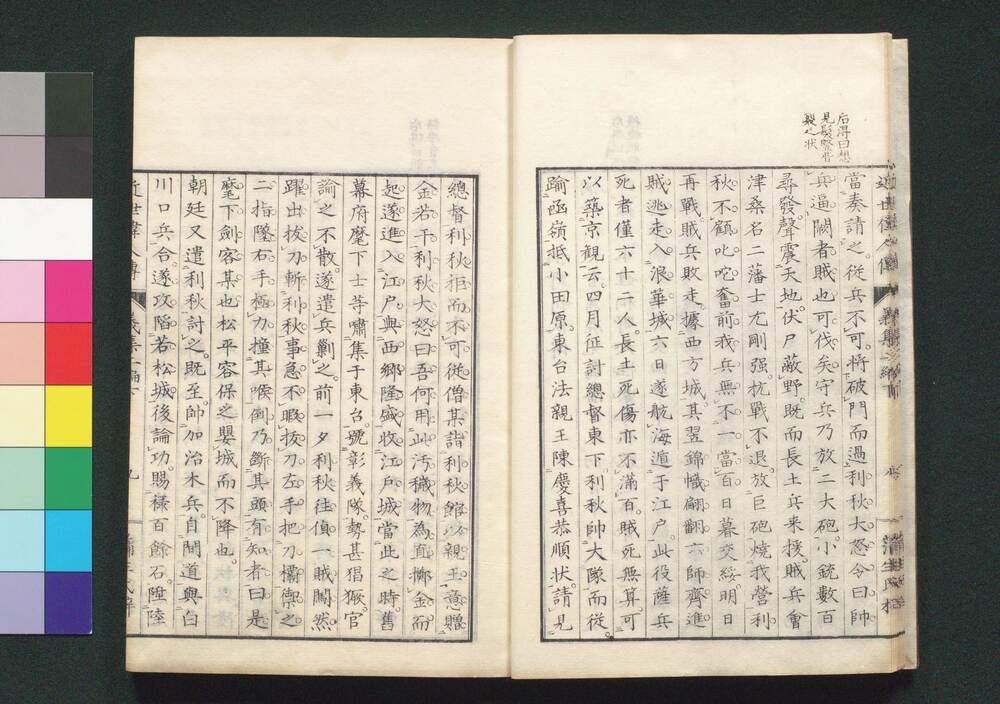 后凋曰想
見髮豎眥
裂之狀
當奏請之從兵不可將破門而過利秋大怒令曰帥
兵逼闕者賊也可伐矣守兵乃放二大砲小銃數百
尋發聲震天地伏尸蔽野既而長土兵来援賊兵會
津桑名二藩士尤剛强抗戰不退放巨砲燒我營利
秋不顧叱咤奮前我兵無不一當百日暮交綏明日
再戰賊兵敗走據西方城其翌錦幟翩翻六師齊進
賊逃走入浪華城六日遂航海遁于江户此役薩兵
死者僅六十二人長土死傷亦不滿百賊死無算可
以築京觀云四月征討總督東下利秋帥大隊而從
踰函嶺抵小田原東台法親王陳慶喜恭順状請見
總督利秋拒而不可從僧某詣利秋館以親王意贈
金若干利秋大怒曰吾何用此汚穢物為直擲金而
起遂進入江户與西郷隆盛收江户城當此之時舊
幕府麾下士等嘯集于東台號彰義隊勢甚猖獗官
諭之不散遂遣兵剿之前一夕利秋往偵一賊闖然
躍出拔刀斬利秋事急不暇拔刀左手把刀欛禦之
二指墮右手極力撞其喉倒乃斷其頭有知者曰是
麾下劍客某也松平容保之嬰城而不降也
朝廷又遣利秋討之既至帥加治木兵自間道與白
川口兵合遂攻陷若松城後論功賜禄百餘石陞陸
近世偉人傳 義集二編 九